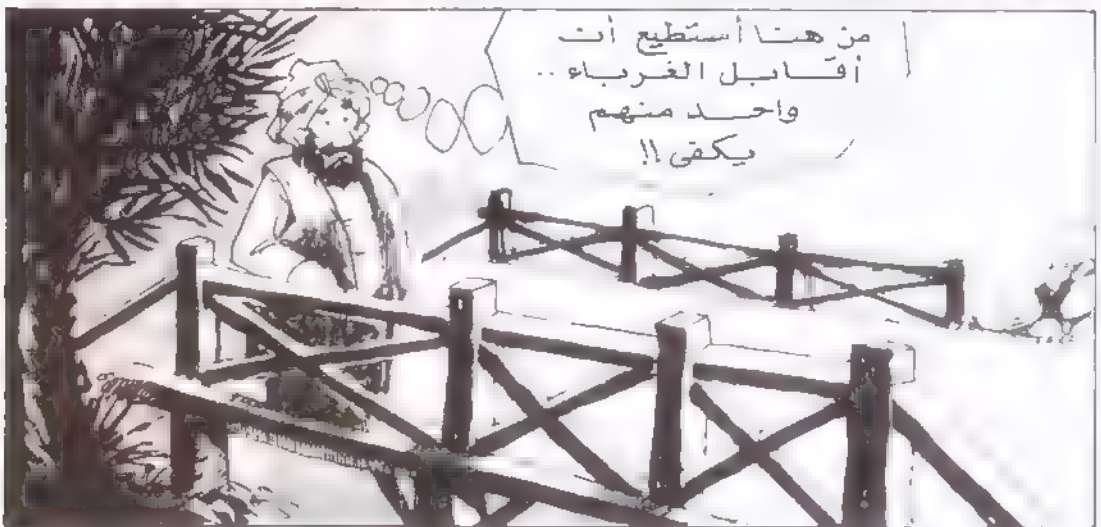 من هنا أستطيع أن
أقابل الغرباء ..
واحد منهم
يكفى !!